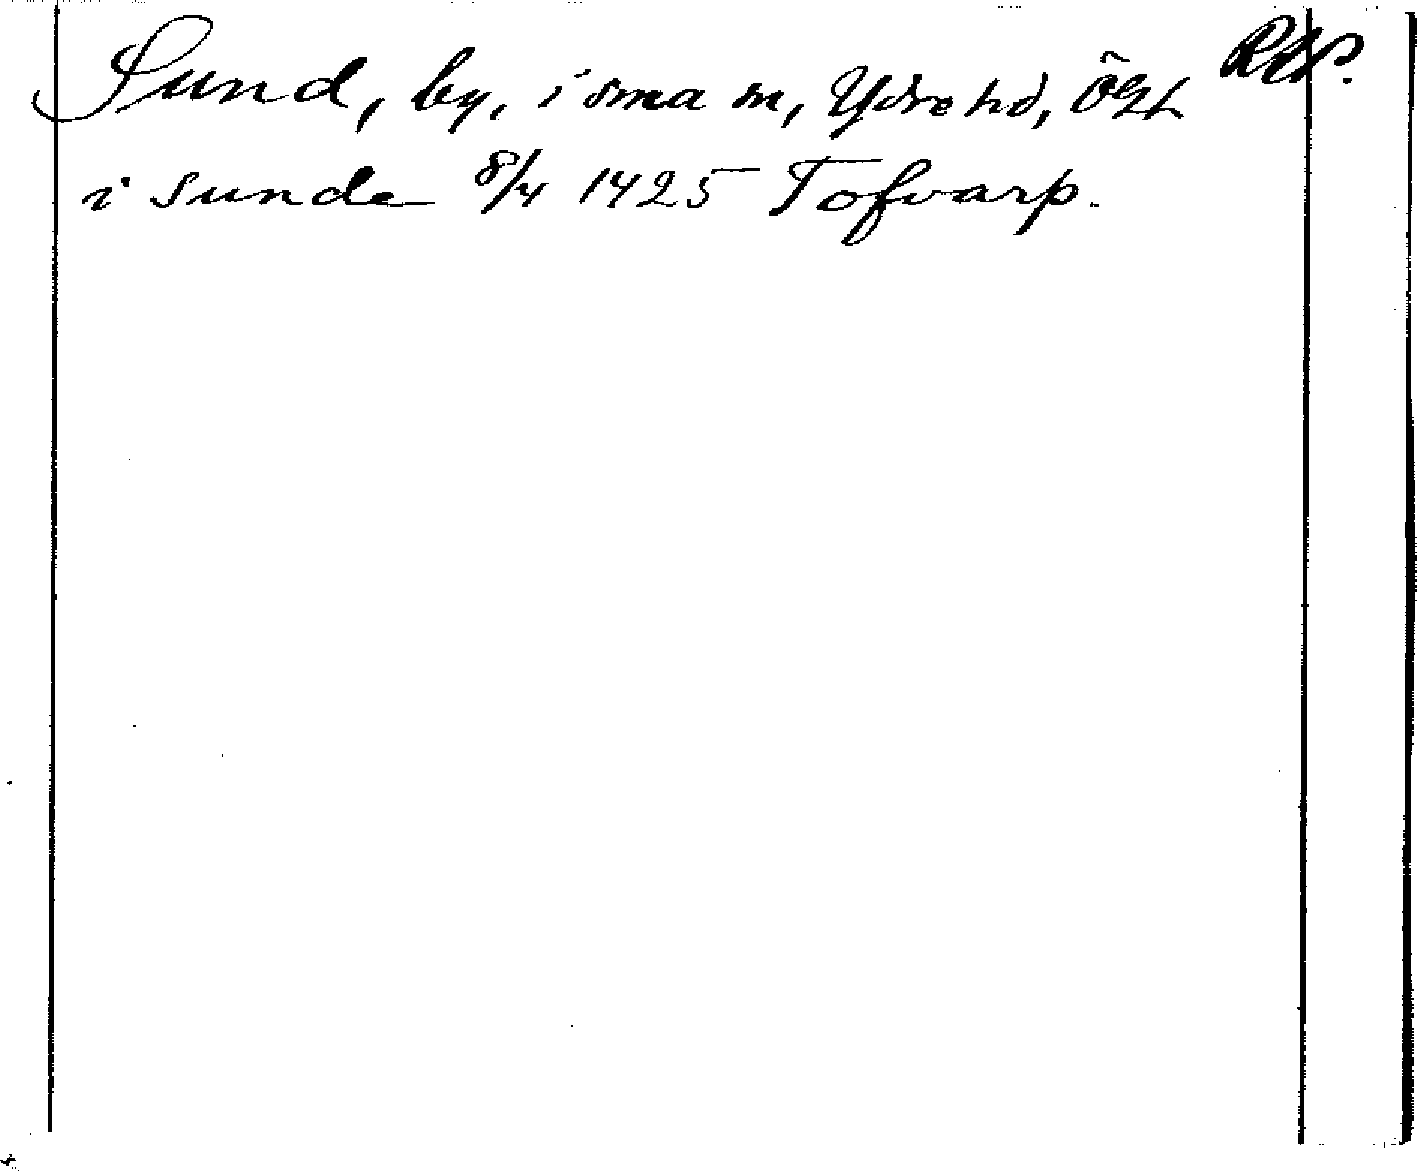 Sund, by, i sma sn, Ydre hd, Ögl
i sunde 8/4 1425 Tofvarp.